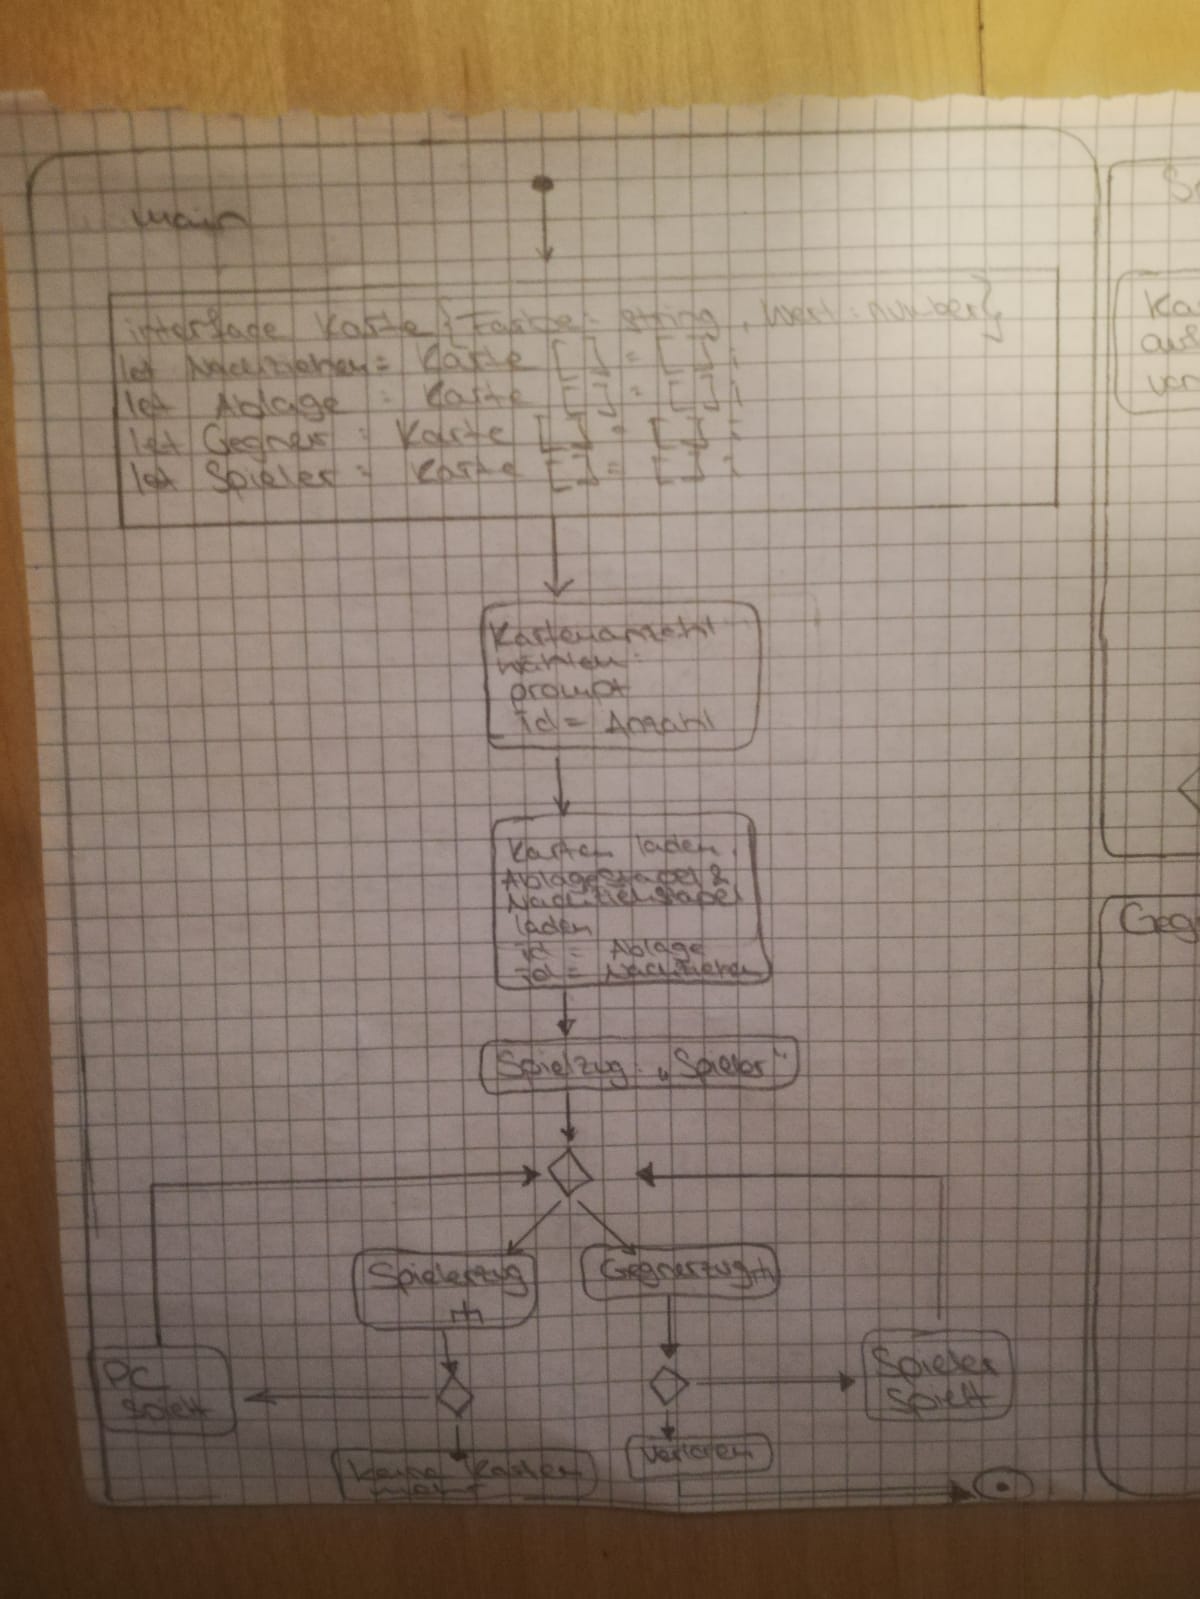 main
interface Karte {Farbe: string, Wert: number}
let Nachziehen: Karte [] = [];
let Ablage : Karte [] = [];
let Gegner : Karte [] = [];
let Spieler : Karte [] = [];
Kartenanzahl
wählen:
prompt
id = Anzahl
Karten laden,
Ablagestapel &
Nachziehstapel
laden
id = Ablage
id = Nachziehen
Spielzug: „Spieler“
Spielerzug
Gegnerzug
PC
spielt
Spieler
spielt
Keine Karten
mehr
Verloren
Ka
aus
Geg